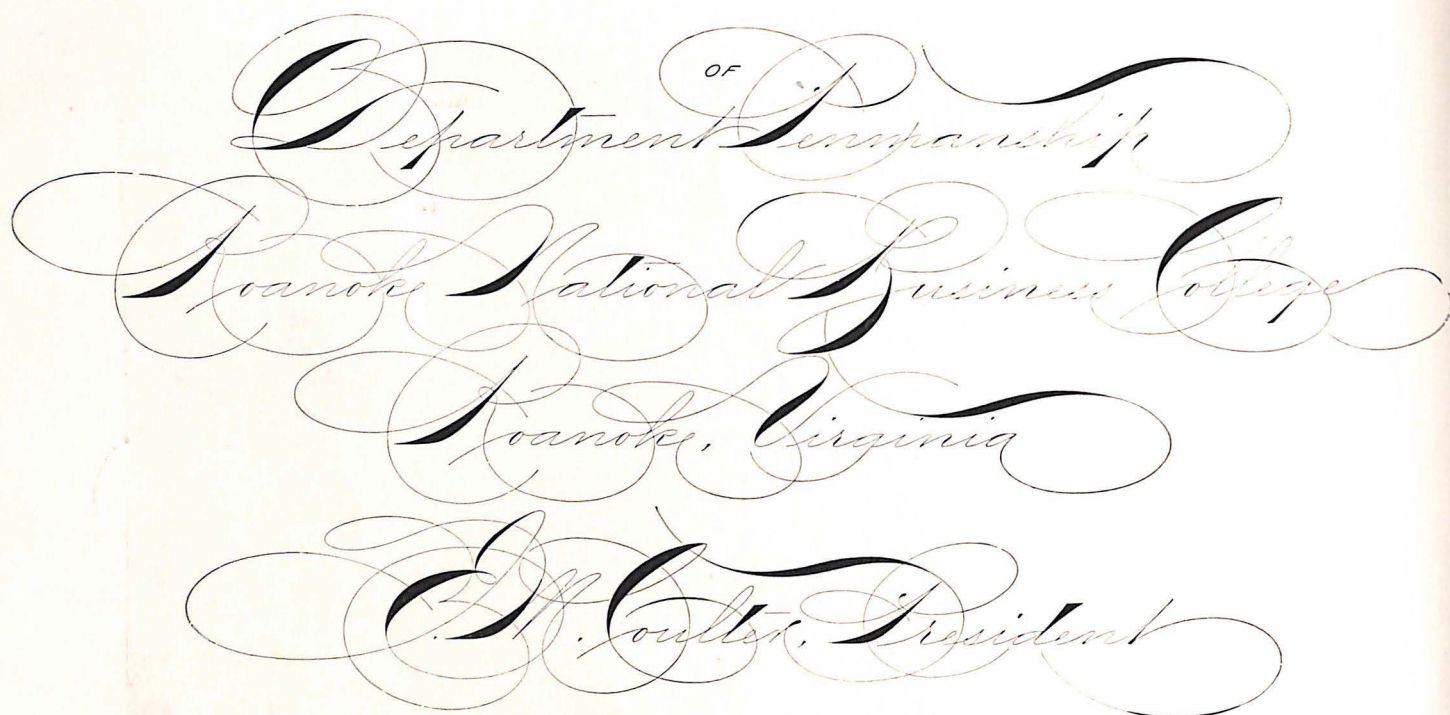 Department OF Penmanship
Roanoke National Business College
Roanoke, Virginia
E. M. Coulter, President